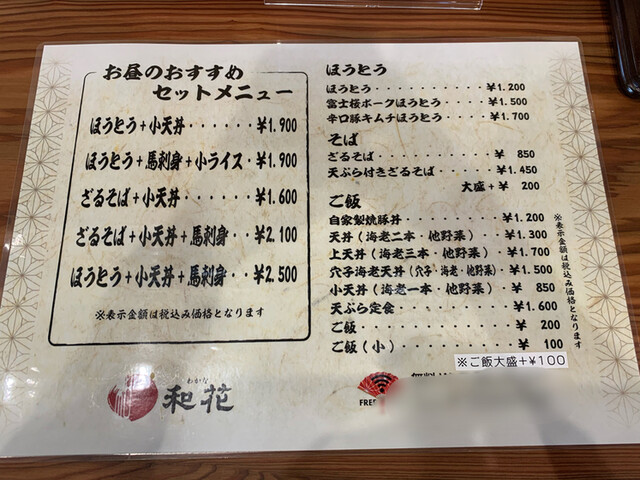 お昼のおすすめ
セットメニュー
ほうとう+小天丼・・・・・・¥1.900
ほうとう+馬刺身+小ライス・¥1.900
ざるそば+小天丼・・・・・・¥1.600
ざるそば+小天丼+馬刺身・・¥2.100
ほうとう+小天丼+馬刺身・・¥2.500
※表示金額は税込み価格となります
わかな
和花
ほうとう
ほうとう・・・・・・・・・・¥1.200
富士桜ポークほうとう・・・・¥1.500
辛口豚キムチほうとう・・・・¥1.700
そば
ざるそば・・・・・・・・・・¥ 850
天ぷら付きざるそば・・・・・¥1.450
大盛+¥ 200
ご飯
自家製焼豚丼・・・・・・・・¥1.200
天丼(海老二本・他野菜)・・¥1.300
上天丼(海老三本・他野菜)・¥1.700
穴子海老天丼(穴子・海老・他野菜)・¥1.500
小天丼(海老一本・他野菜)・¥ 850
天ぷら定食・・・・・・・・・¥1.600
ご飯・・・・・・・・・・・・¥ 200
ご飯(小)・・・・・・・・・¥ 100
※ご飯大盛+¥100
※表示金額は税込み価格となります